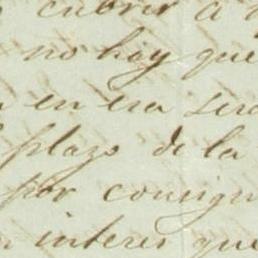 cubrir a
no hay que
en esa
plazo de la
por consigu
interes que